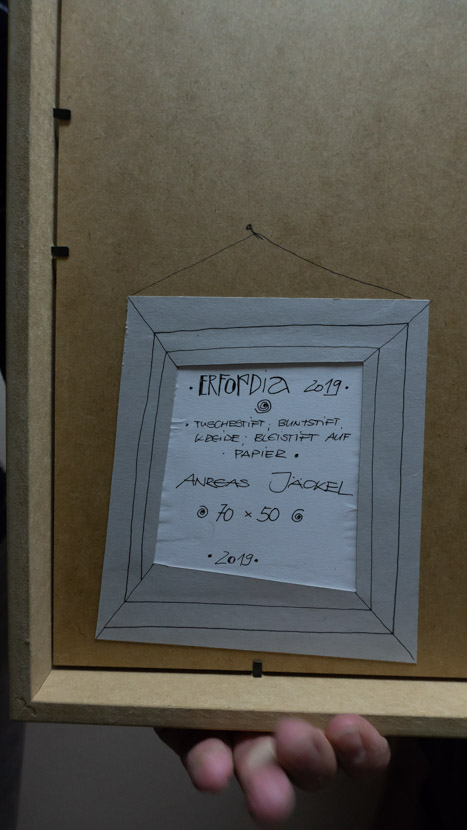 · ERFORDIA 2019 ·
· TUSCHESTIFT, BUNTSTIFT,
KREIDE, BLEISTIFT AUF
· PAPIER ·
ANREAS JÄCKEL
70 × 50
· 2019 ·